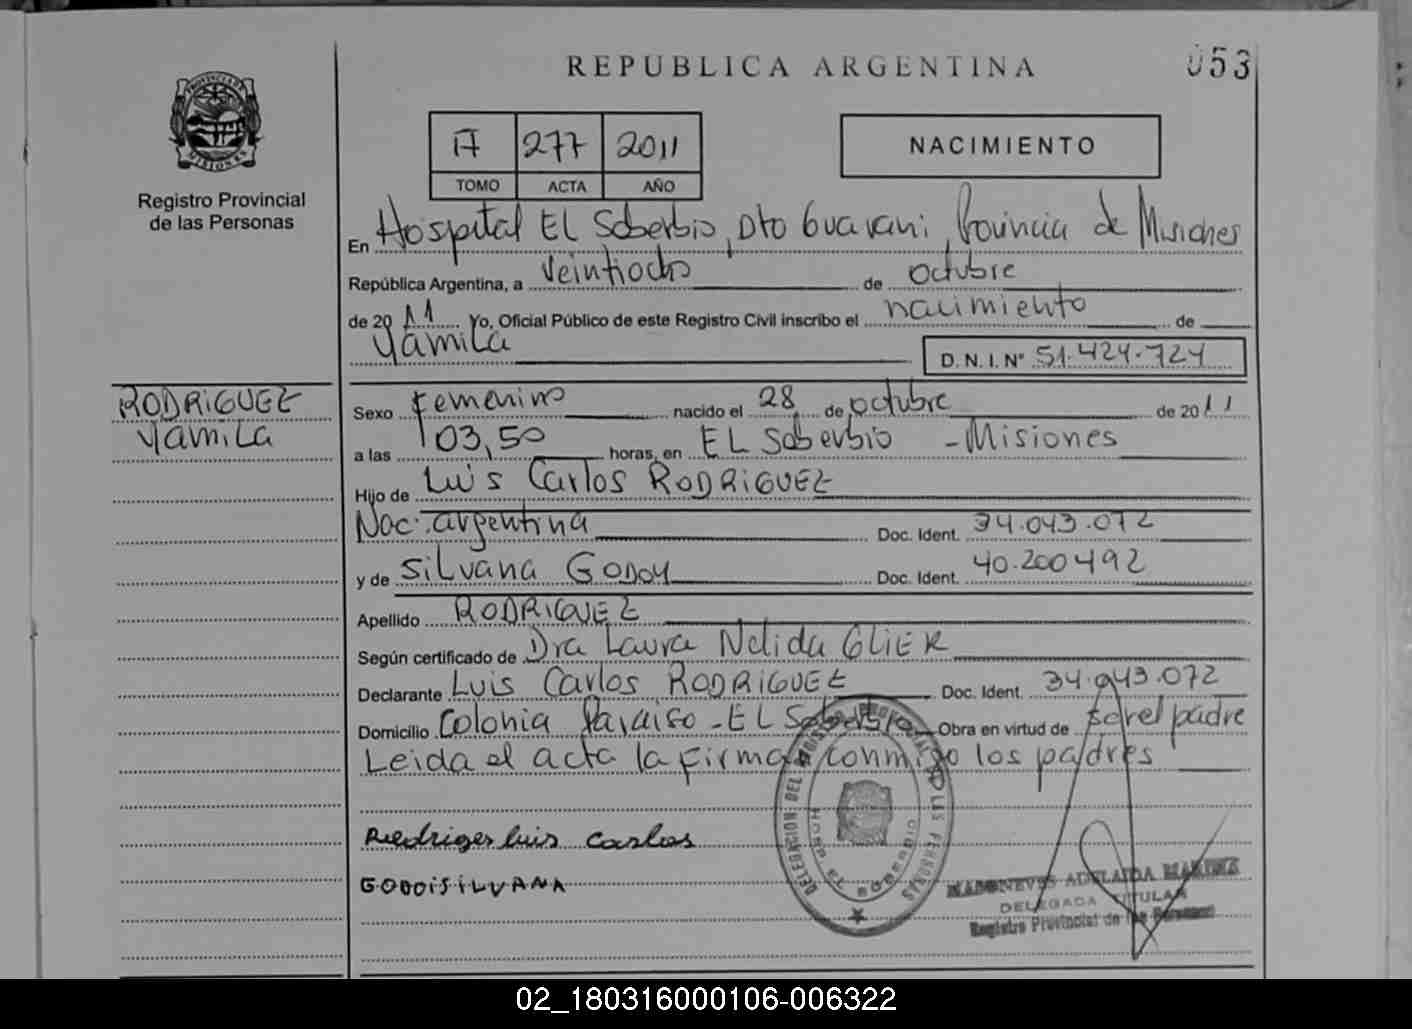 REPUBLICA ARGENTINA
053
PROVINCIA DE MISIONES
Registro Provincial
de las Personas
277 2011
TOMO ACTA AÑO
NACIMIENTO
En Hospital EL Soberbio, Dto Guarani, Provincia de Misiones
República Argentina, a veintiocho de octubre
de 2011 Yo, Oficial Público de este Registro Civil inscribo el nacimiento de
Yamila
D.N.I. N° 51.424.724
RODRIGUEZ
Yamila
Sexo femenino nacido el 28 de octubre de 2011
a las 03,50 horas, en EL Soberbio - Misiones
Hijo de Luis Carlos RODRIGUEZ
Nac. argentina Doc. Ident. 34.043.072
y de Silvana GODOY Doc. Ident. 40.200492
Apellido RODRIGUEZ
Según certificado de Dra Laura Nelida GLIER
Declarante Luis Carlos RODRIGUEZ Doc. Ident. 34.043.072
Domicilio Colonia Paraiso - EL Soberbio Obra en virtud de ser el padre
Leida el acta la firman conmigo los padres
luis Carlos
GODOISILVANA
DELEGACION DEL REGISTRO PROVINCIAL DE LAS PERSONAS
ADELAIDA
DELEGADA TITULAR
Registro Provincial de las Personas
02_180316000106-006322